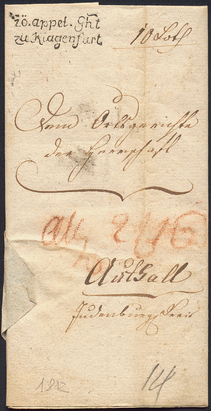 iö. appel. Ght
zu Klagenfurt
10 Loth
Dem Ortsgerichte
der Herrschaft
Authall
Judenburger Kreis
14
1812